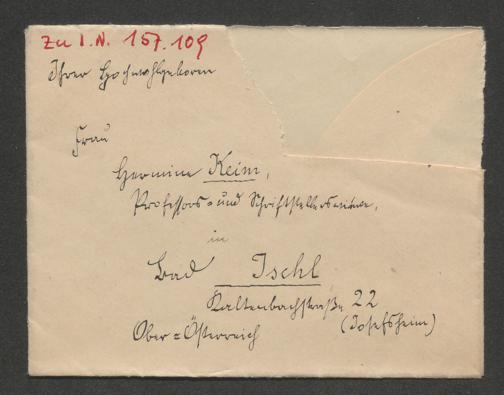 Zu I.N. 157.109
Ihrer Hochwohlgeboren
Frau
Hermine Keim,
Professors- und Schriftstellerswitwe,
in
Bad Ischl
Kaltenbachstraße 22
(Josefsheim)
Ober=Österreich